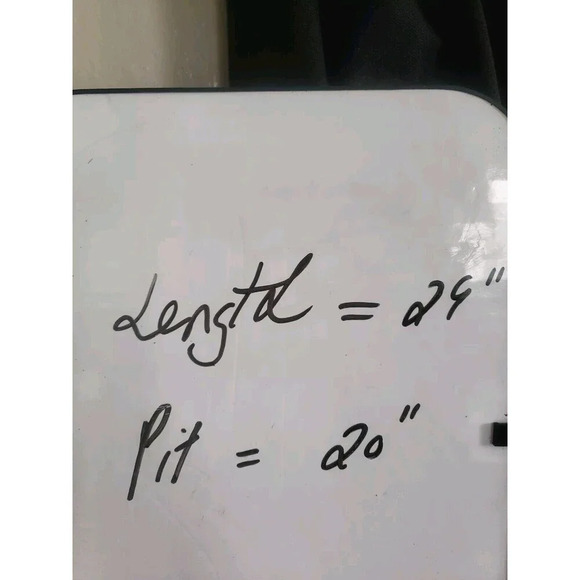 Length = 29"
Pit = 20"